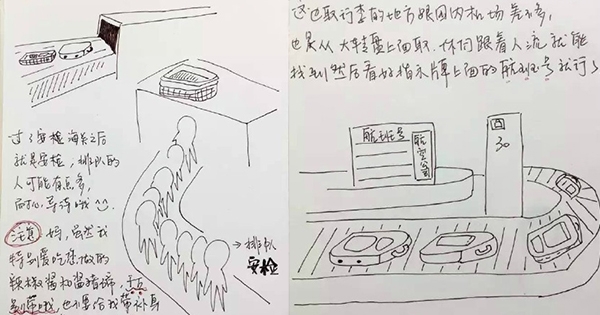 过了安检海关之后
就是安检,排队的
人可能有点多,
耐心等待哦
注意 妈,虽然我
特别爱吃您做的
辣椒酱和酱猪蹄,千万
别带哦,也不要给我带补身
→排队
安检
这边取行李的地方跟国内机场差不多,
也是从大转盘上面取,你们跟着人流就能
找到然后看好指示牌上面的航班号就行了
航班号
航空公司
30